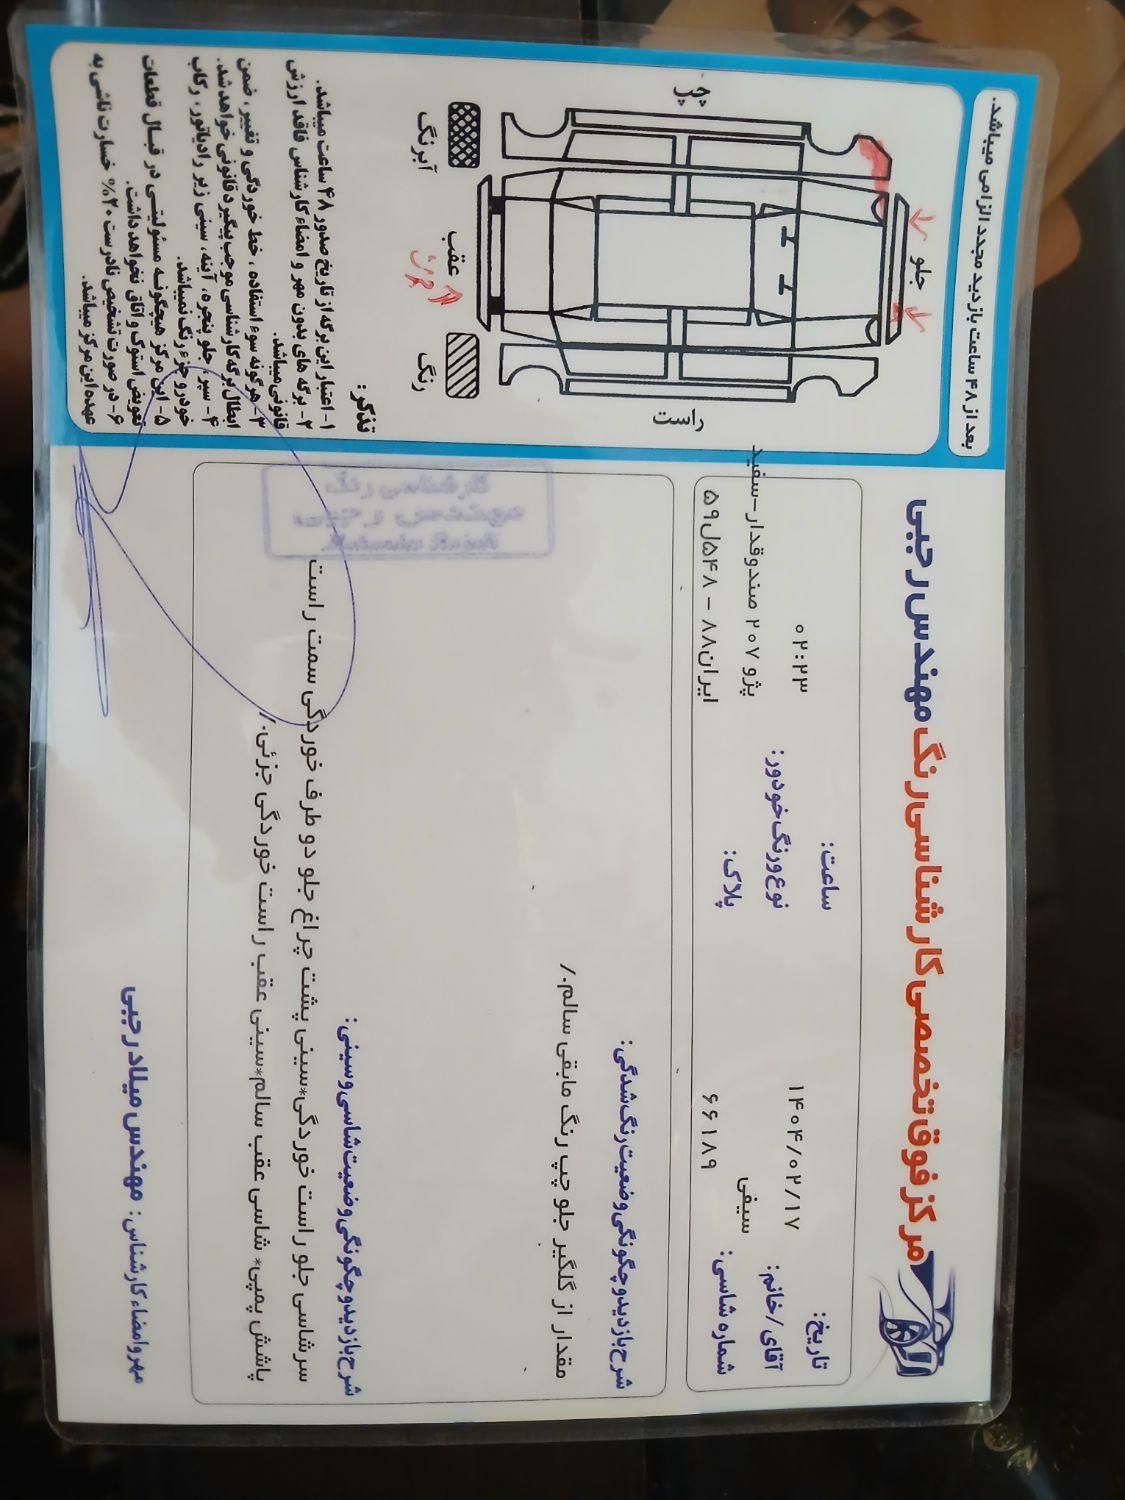 مرکز فوق تخصصی کارشناسی رنگ مهندس رجبی
تاریخ: ۱۴۰۴/۰۲/۱۷
ساعت: ۰۲:۲۳
آقای/خانم: سیفی
نوع ورنگ خودور: پژو ۲۰۷ صندوقدار-سفید
شماره شاسی: ۶۶۱۸۹
پلاک: ایران۸۸ - ۵۴۸ل۵۹
شرح بازدید و چگونگی وضعیت رنگ شدگی:
مقدار از گلگیر جلو چپ رنگ مابقی سالم./
شرح بازدید و چگونگی وضعیت شاسی و سینی:
سرشاسی جلو راست خوردگی*سینی پشت چراغ جلو دو طرف خوردگی سمت راست
پاشش پمپی* شاسی عقب سالم*سینی عقب راست خوردگی جزئی./
مهر و امضاء کارشناس: مهندس میلاد رجبی
کارشناسی رنگ
مهندس رجبی
بعد از ۴۸ ساعت بازدید مجدد الزامی میباشد.
جلو
چپ
راست
عقب
آبرنگ
رنگ
تذکر:
۱- اعتبار این برگه از تاریخ صدور ۴۸ ساعت میباشد.
۲- برگه های بدون مهر و امضاء کارشناس فاقد ارزش
قانونی میباشد.
۳- هرگونه سوء استفاده، خط خوردگی و تغییر، ضمن
ابطال برگه کارشناسی موجب پیگیرد قانونی خواهد شد.
۴- سپر، جلو پنجره، آینه، سینی زیر رادیاتور، رکاب
خودرو جزء رنگ نمیباشد.
۵- این مرکز هیچگونه مسئولیتی در قبال قطعات
تعویض استوک و اتاق نخواهد داشت.
۶- در صورت تشخیص نادرست ۲۰% خسارت ناشی به
عهده این مرکز میباشد.